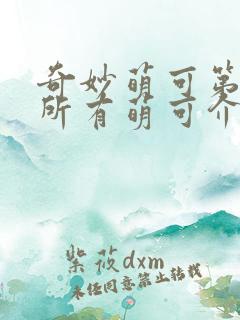 奇妙萌可第
所有萌可介
紫莜dxm
未经同意禁止转载